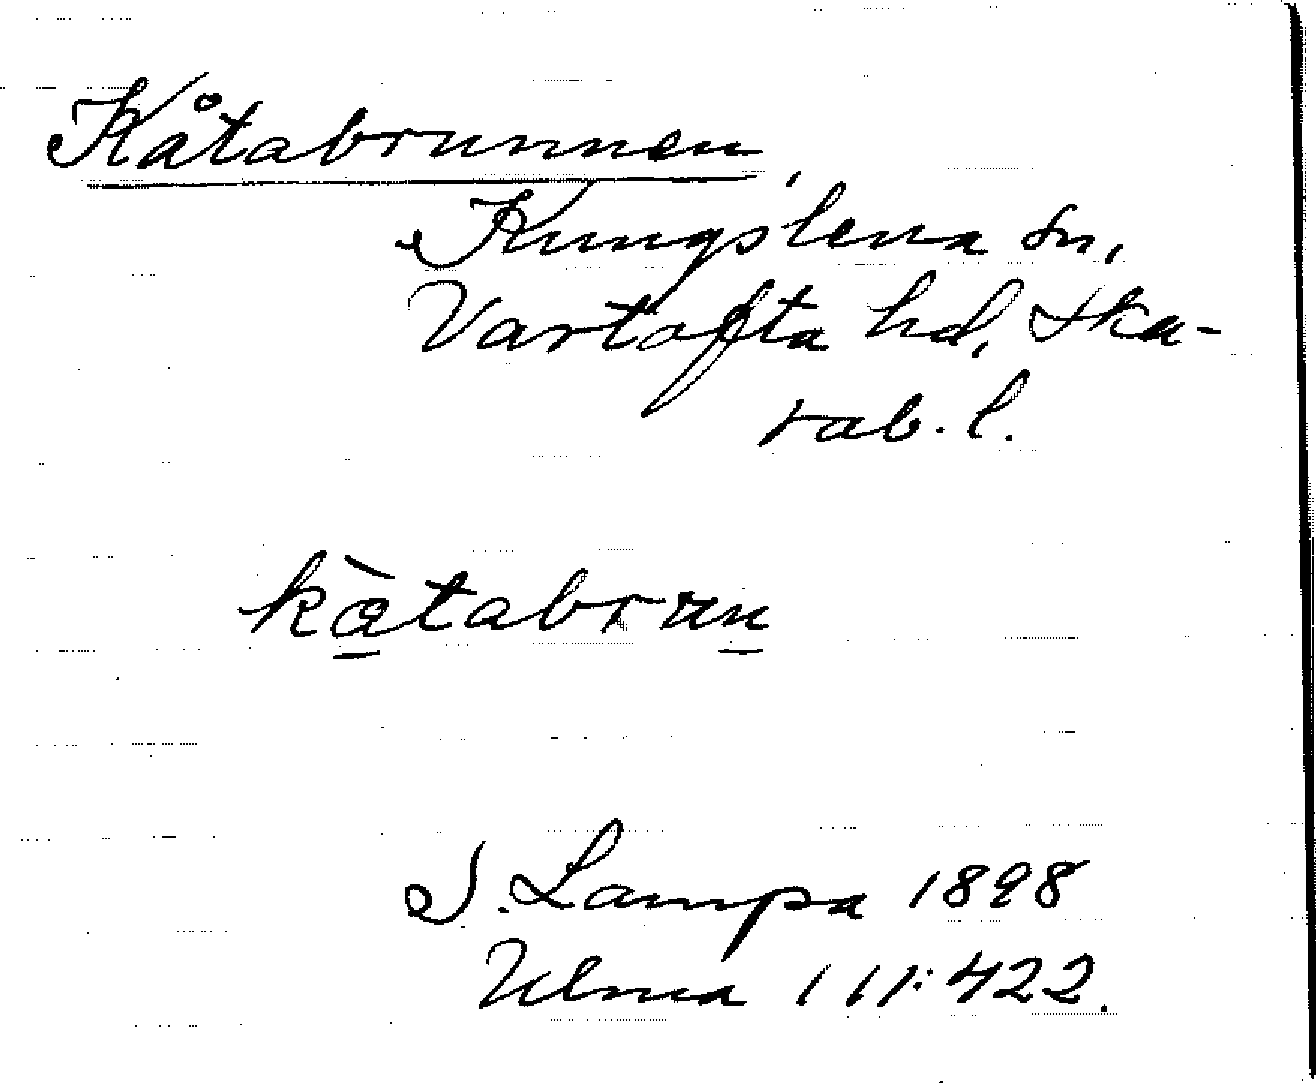 Kåtabrunnen,
Kungslena sn,
Vartofta hd, Ska-
rab. l.
kàtabrun
S. Lampa 1898
Ulma 111:422.